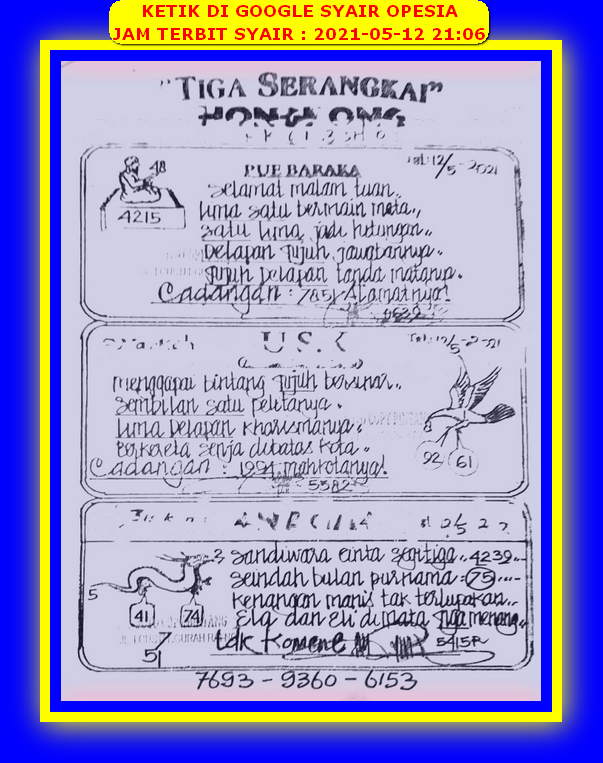 KETIK DI GOOGLE SYAIR OPESIA
JAM TERBIT SYAIR : 2021-05-12 21:06
"TIGA SERANGKAI"
HONGKONG
48
4215
PUE BARAKA
tgl: 12/5-2021
Selamat malam tuan..
lima satu bermain mata..
satu lima, jadi hitungan..
Delapan Tujuh, jawabannya..
Tujuh Delapan tanda matanya.
Cadangan : 7851 Alamatnya!
U.S.K
Tgl: 12/5-2021
menggapai bintang Tujuh bersinar..
Sembilan satu peletanya.
lima Delapan kharismanya.
Berkereta senja dibatas kota..
Cadangan : 1994 mahkotanya!
5382
92 61
3
Sandiwara cinta segitiga.. 4239...
5
seindah bulan purnama = 75....
kenangan manis tak terlupakan...
41 74
Ela dan eli dimata tiga menang..
7
51
tdk komene
5415R
7693 - 9360 - 6153